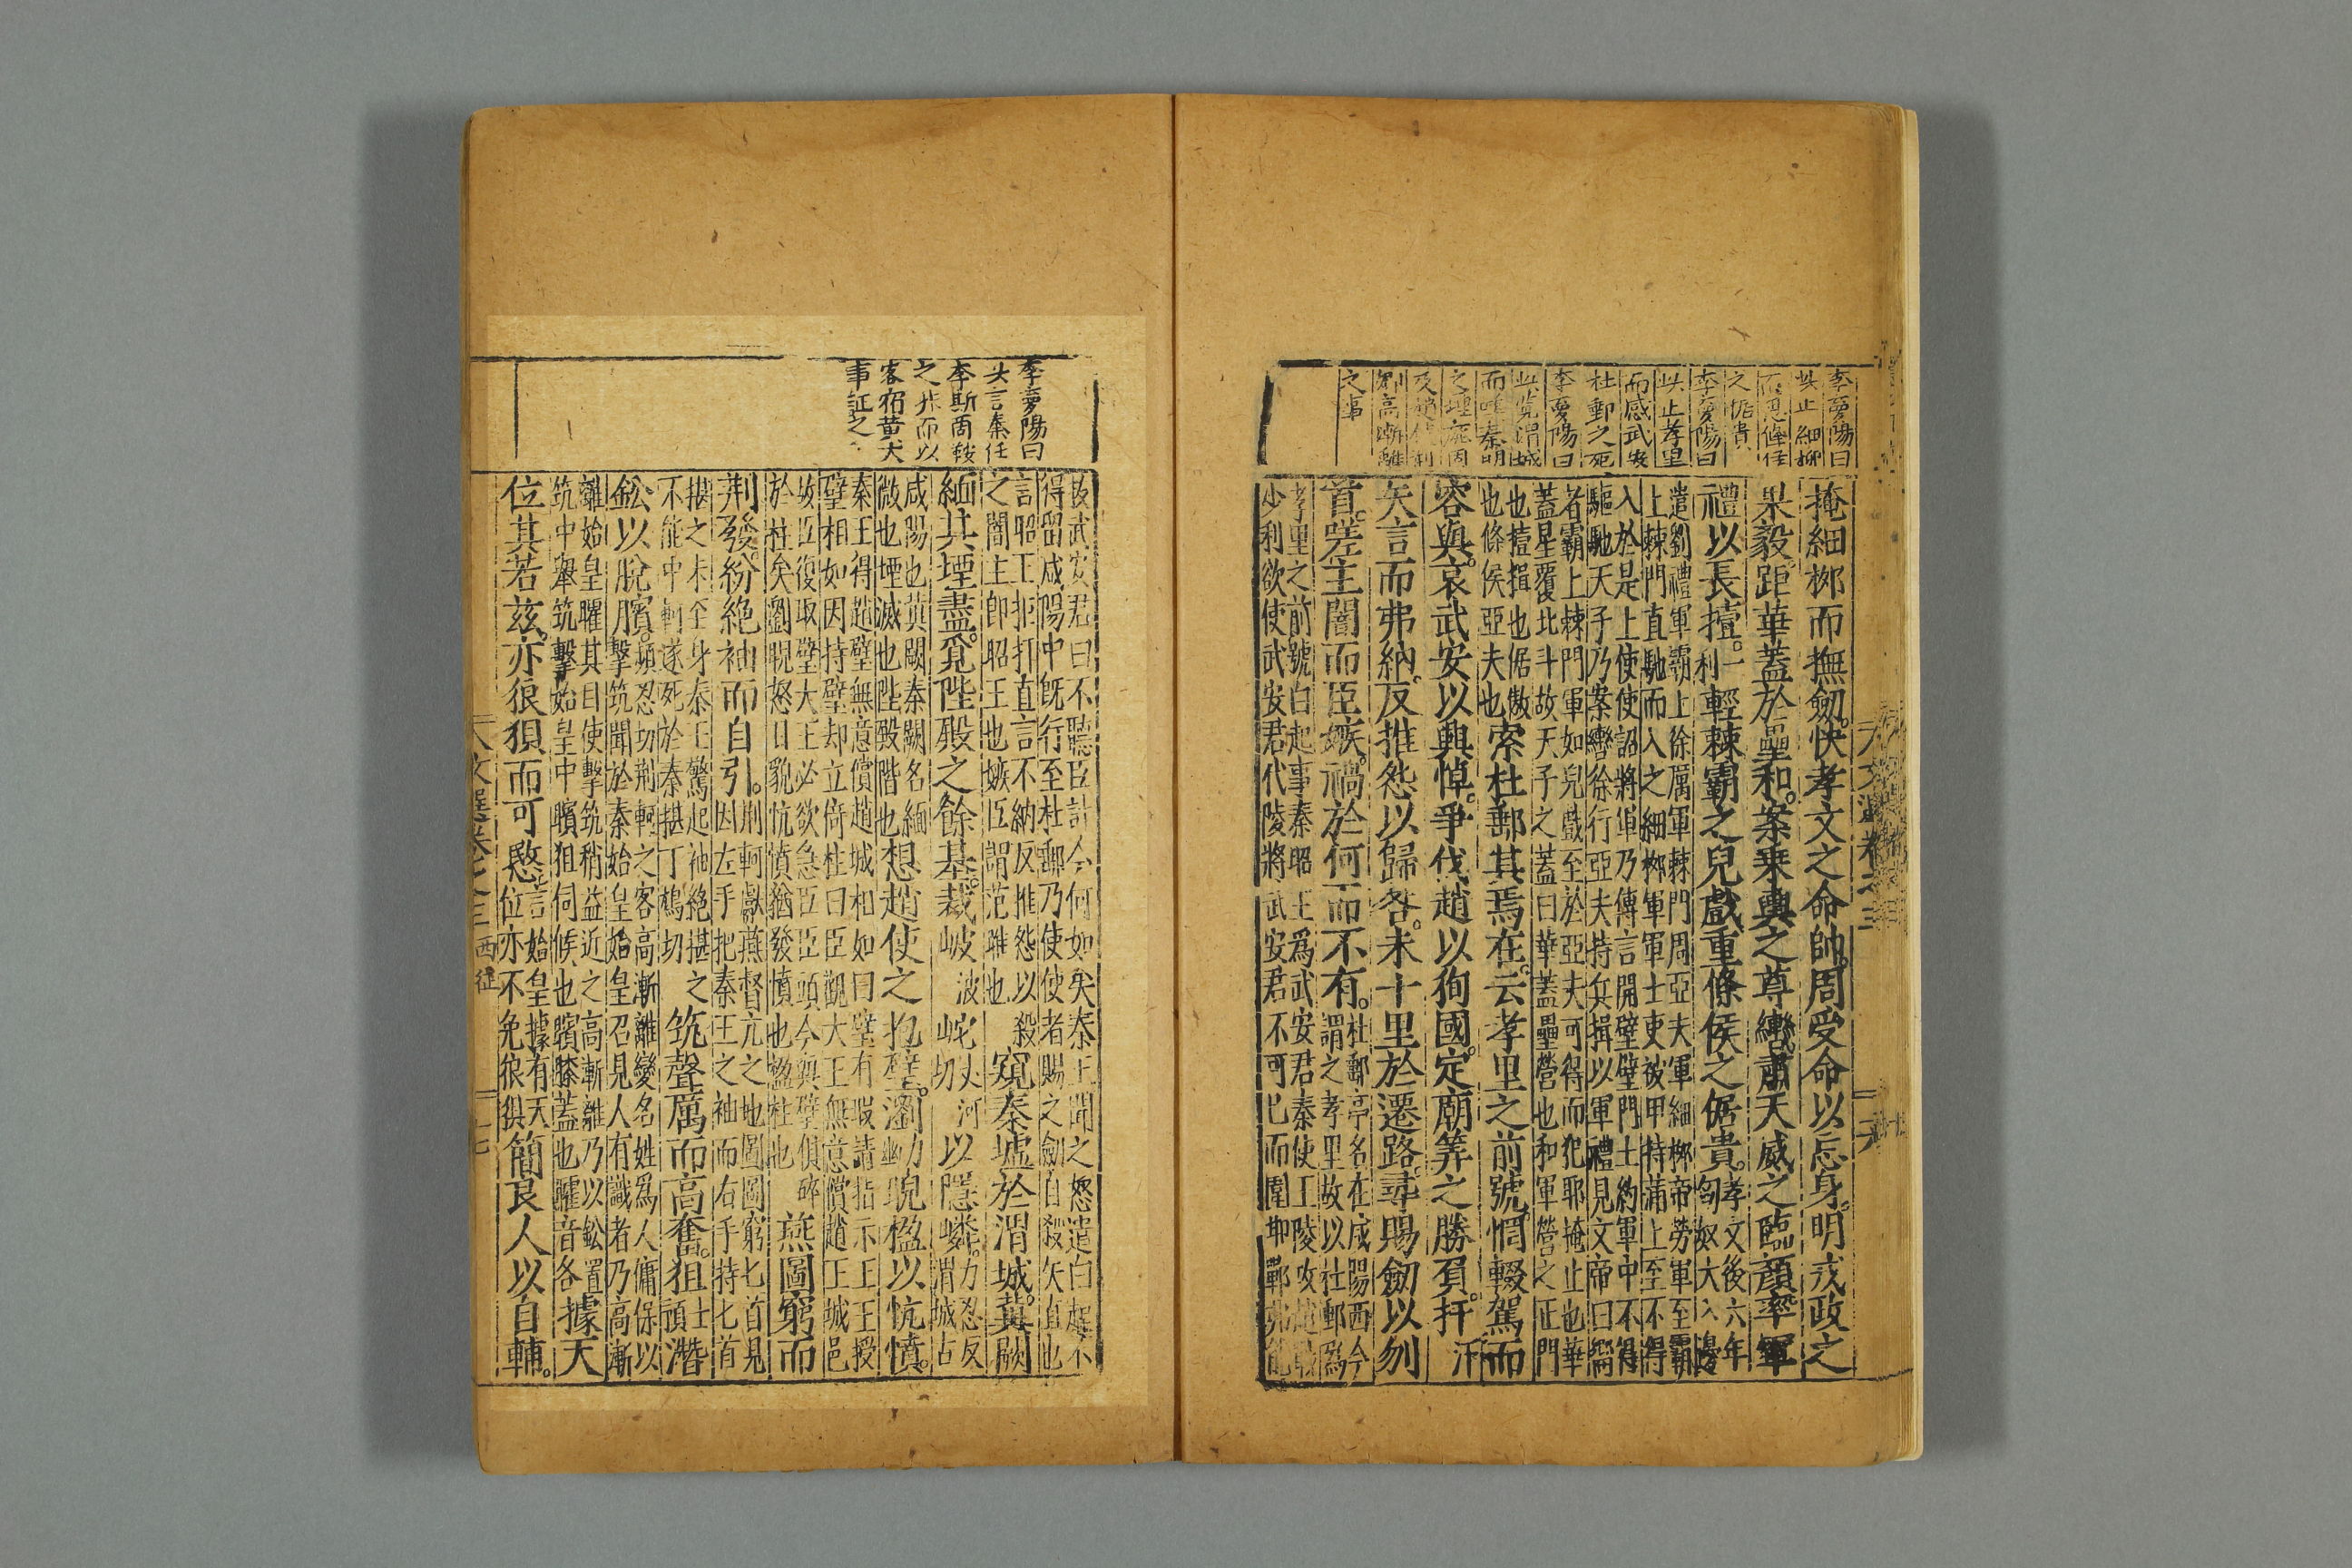 李夢陽曰
此止細柳
之倨貴
李夢陽曰
此止孝里
而感武安
杜郵之死
李夢陽曰
此覽渭城
而嘆秦明
之事
掩細柳而撫劒快孝文之命帥周受命以忘身明戎政之
果毅距華蓋於壘和案乘輿之尊轡肅天威之臨顏率軍
禮以長𢷤利一輕棘霸之兒戲重條侯之倨貴孝文後六年
匈奴大入邊
遣劉禮軍霸上徐厲軍棘門周亞夫軍細栁帝勞軍至霸
上棘門直馳而入之細栁軍軍士吏被甲持滿上至不得
入於是上使使詔將軍乃傳言開壁壁門士約軍中不得
驅馳天子乃案轡徐行亞夫持兵揖以軍禮見文帝曰嚮
者霸上棘門軍如兒戲至於亞夫可得而犯耶掩止也華
蓋星覆北斗故天子之蓋曰華蓋壘營也和軍營之正門
也𢷤揖也倨傲
也條侯亞夫也
索杜郵其焉在云孝里之前號惘輟駕而
容與哀武安以興悼爭伐趙以狥國定廟筭之勝負扞汗
矢言而弗納反推怨以歸咎未十里於遷路尋賜劒以刎
首嗟主闇而臣嫉禍於何而不有杜郵亭名在咸陽西今
謂之孝里故以杜郵爲
孝里之前號白起事秦昭王爲武安君秦使王陵攻趙戰
少利欲使武安君代陵將武安君不可已而圍邯鄲弗能
文選卷之三
李夢陽曰
李斯
之非而以
客宿黄犬
事証之
拔武安君曰不聽臣計今何如矣秦王聞之怒遣白起不
得留咸陽中旣行至杜郵乃使使者賜之劒自殺矢直也
言昭王拒扞直言不納反推怨以殺
之闇主卽昭王也嫉臣謂范雎也
窺秦墟於渭城冀闕
緬其堙盡覓陛殿之餘基裁岥波岮丈河切以隱嶙力忍反
渭城古
咸陽也冀闕秦闕名緬
微也堙滅也陛殿階也
想趙使之抱璧瀏睨楹以忼憤
秦王得趙璧無意償趙城相如曰璧有瑕請指示王王授
璧相如因持璧却立倚柱曰臣觀大王無意償趙王城邑
故臣復取璧大王必欲急臣臣頭今與璧俱碎
於柱矣瀏睨怒目貌忼憤猶發憤也楹柱也
燕圖窮而
荆發紛絶袖而自引荆軻獻燕督亢之地圖圖窮匕首見
因左手把秦王之袖而右手持匕首
揕之未至身秦王驚起袖絶揕之
不能中軻遂死於秦揕丁鴆切
筑聲厲而高奮狙潛
鈆以脫臏頻忍切荆軻之客高漸離變名姓爲人傭保以
擊筑聞於秦始皇始皇召見人有識者乃高漸
離始皇矐其目使擊筑稍益近之高漸離乃以鈆置
筑中舉筑擊始皇中臏狙伺候也臏膝蓋也矐音各
據天
位其若兹亦狼狽而可愍言始皇據有天
位亦不免狼狽
簡良人以自輔
文選卷之三
西征
十七